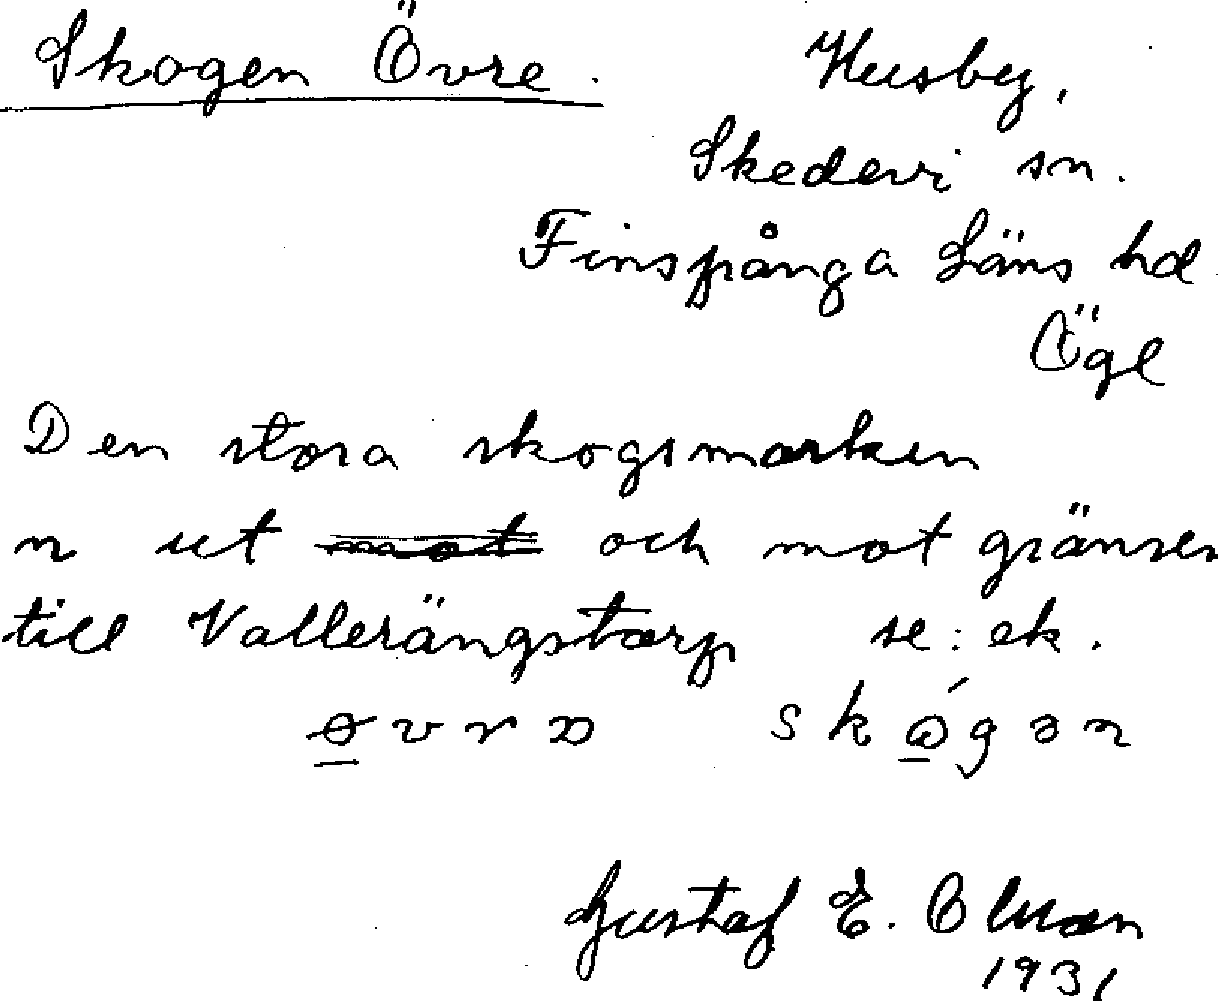 Skogen Övre. Husby,
Skedevi sn.
Finspånga Läns hd
Ögl
Den stora skogsmarken
n ut och mot gränsen
till Vallerängstorp se: ek.
Gustaf E. Olson
1931